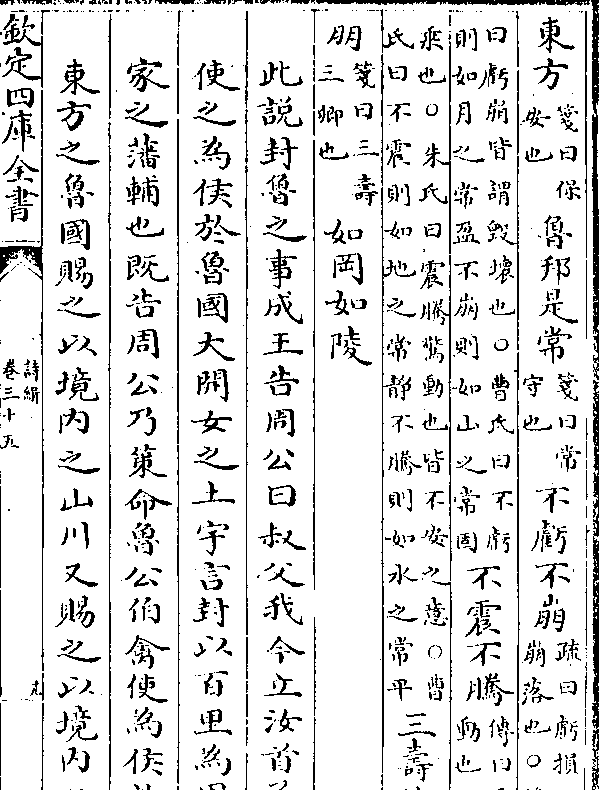 東方箋曰保安也魯邦是常箋曰常守也不虧不崩疏曰虧損崩落也○
曰虧崩皆謂毀壞也○曹氏曰不虧則如月之常盈不崩則如山之常固不震不騰傳曰動也
乘也○朱氏曰震騰驚動也皆不安之意○曹氏曰不震則如地之常靜不騰則如水之常平三壽
朋箋曰三壽三卿也如岡如陵
此說封魯之事成王告周公曰叔父我今立汝首
使之為侯於魯國大開女之土宇言封以百里為
家之藩輔也既告周公乃策命魯公伯禽使為侯
東方之魯國賜之以境內之山川又賜之以境內
欽定四庫全書
詩緝
卷三十五